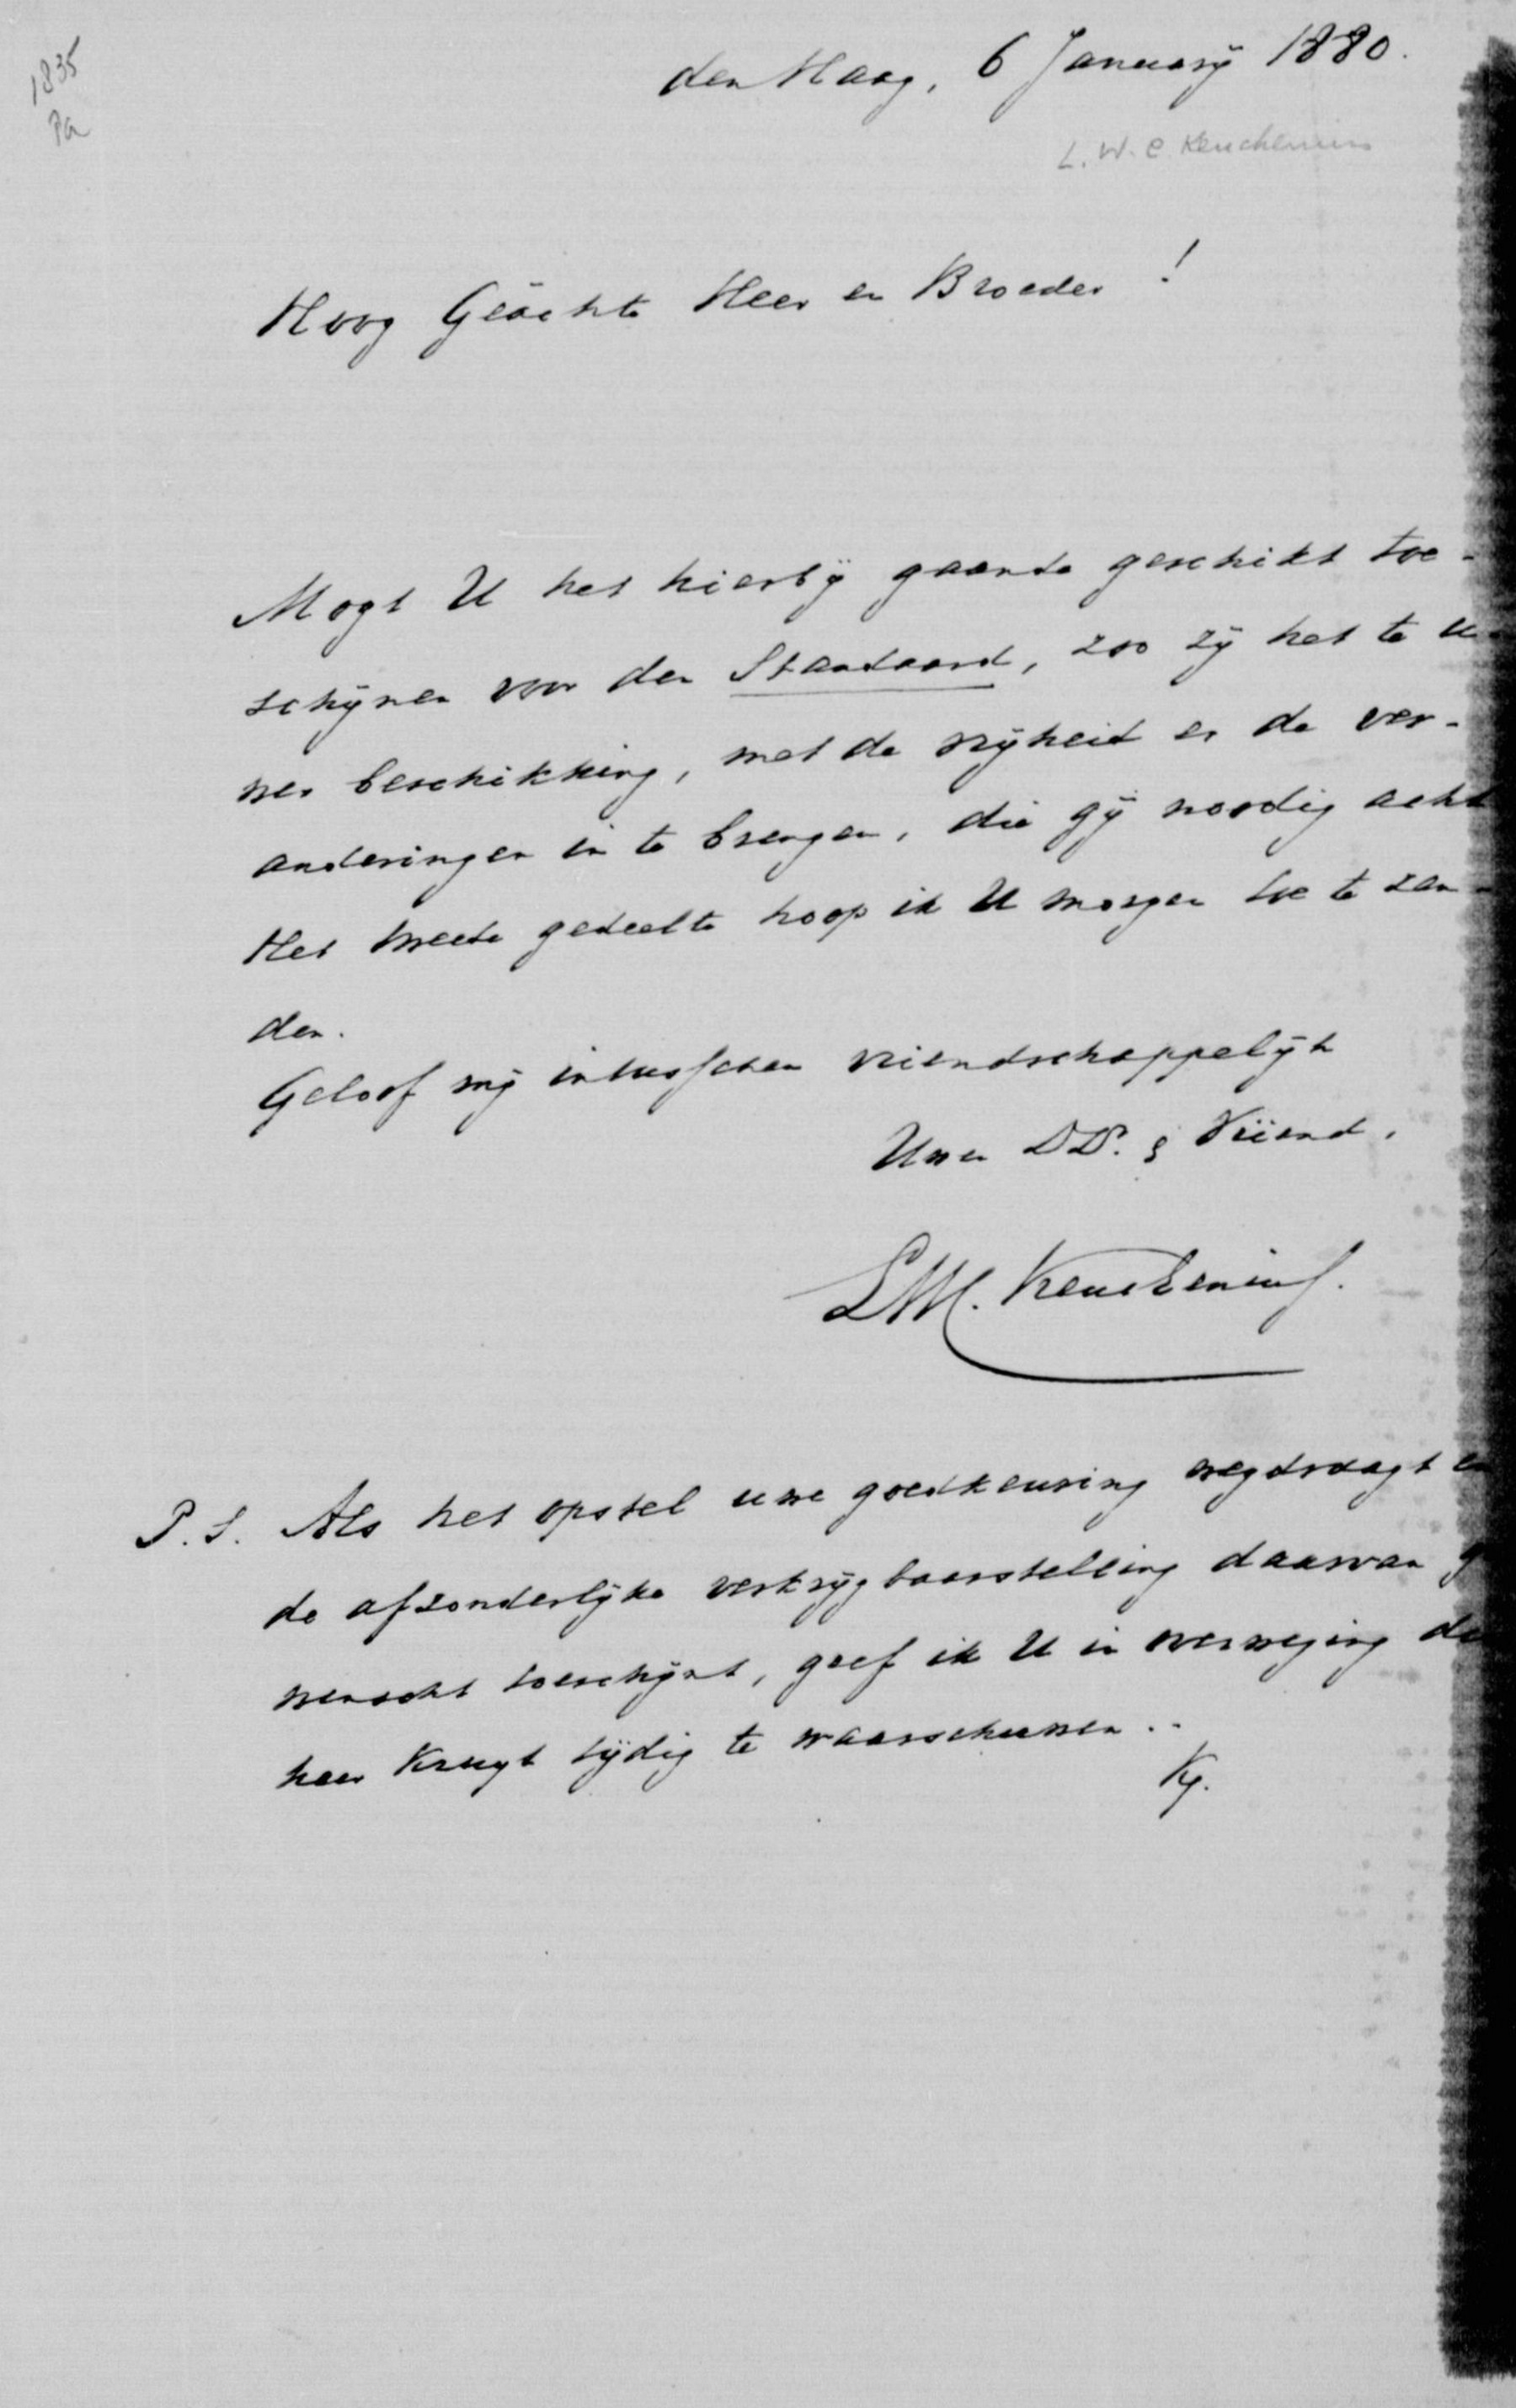 1835
Pa
den Haag, 6 Januarij 1880.
L. W. C. Keuchenius
Hoog Geächte Heer en Broeder!
Mogt U het hierbij gaande geschikt toe-
schijnen voor den Standaard, zoo zij het te u-
wer beschikking, met de vrijheid er de ver-
anderingen in te brengen, die gij noodig acht
Het tweede gedeelte hoop ik U morgen toe te zen-
den.
Geloof mij intusschen vriendschappelijk
Uwen DD. & Vriend,
LWC. Keuchenius.
P.S. Als het opstel uwe goedkeuring wegdraagt en
de afzonderlijke verkrijgbaarstelling daarvan g
wenscht toeschijnt, geef ik U in overweging de
heer Kruyt tijdig te waarschuwen.
Ks.